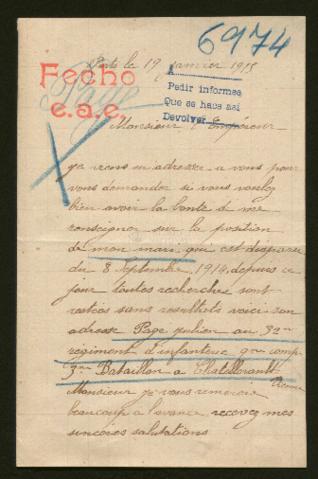 6974
Paris le 19 janvier 1915
Fecho
e.a.e.
Page
Pedir informes
Que se haus asi
Devolver
Monsieur l'Empéreur
ja viens m adresser a vous pour
vous demander si vous voulez
bien avoir la bonté de me
renseigner sur la position
de mon mari qui est disparu
du 8 Septembre 1914, depuis ce
jour toutes recherches sont
restées sans resultats voici son
adresse Page julien au 32me
regiment d'infanterie 9me comp
3me Bataillon a Chatellerault
Vienne
Monsieur je vous remercie
beaucoup a l'avance, recevez mes
sincères salutations